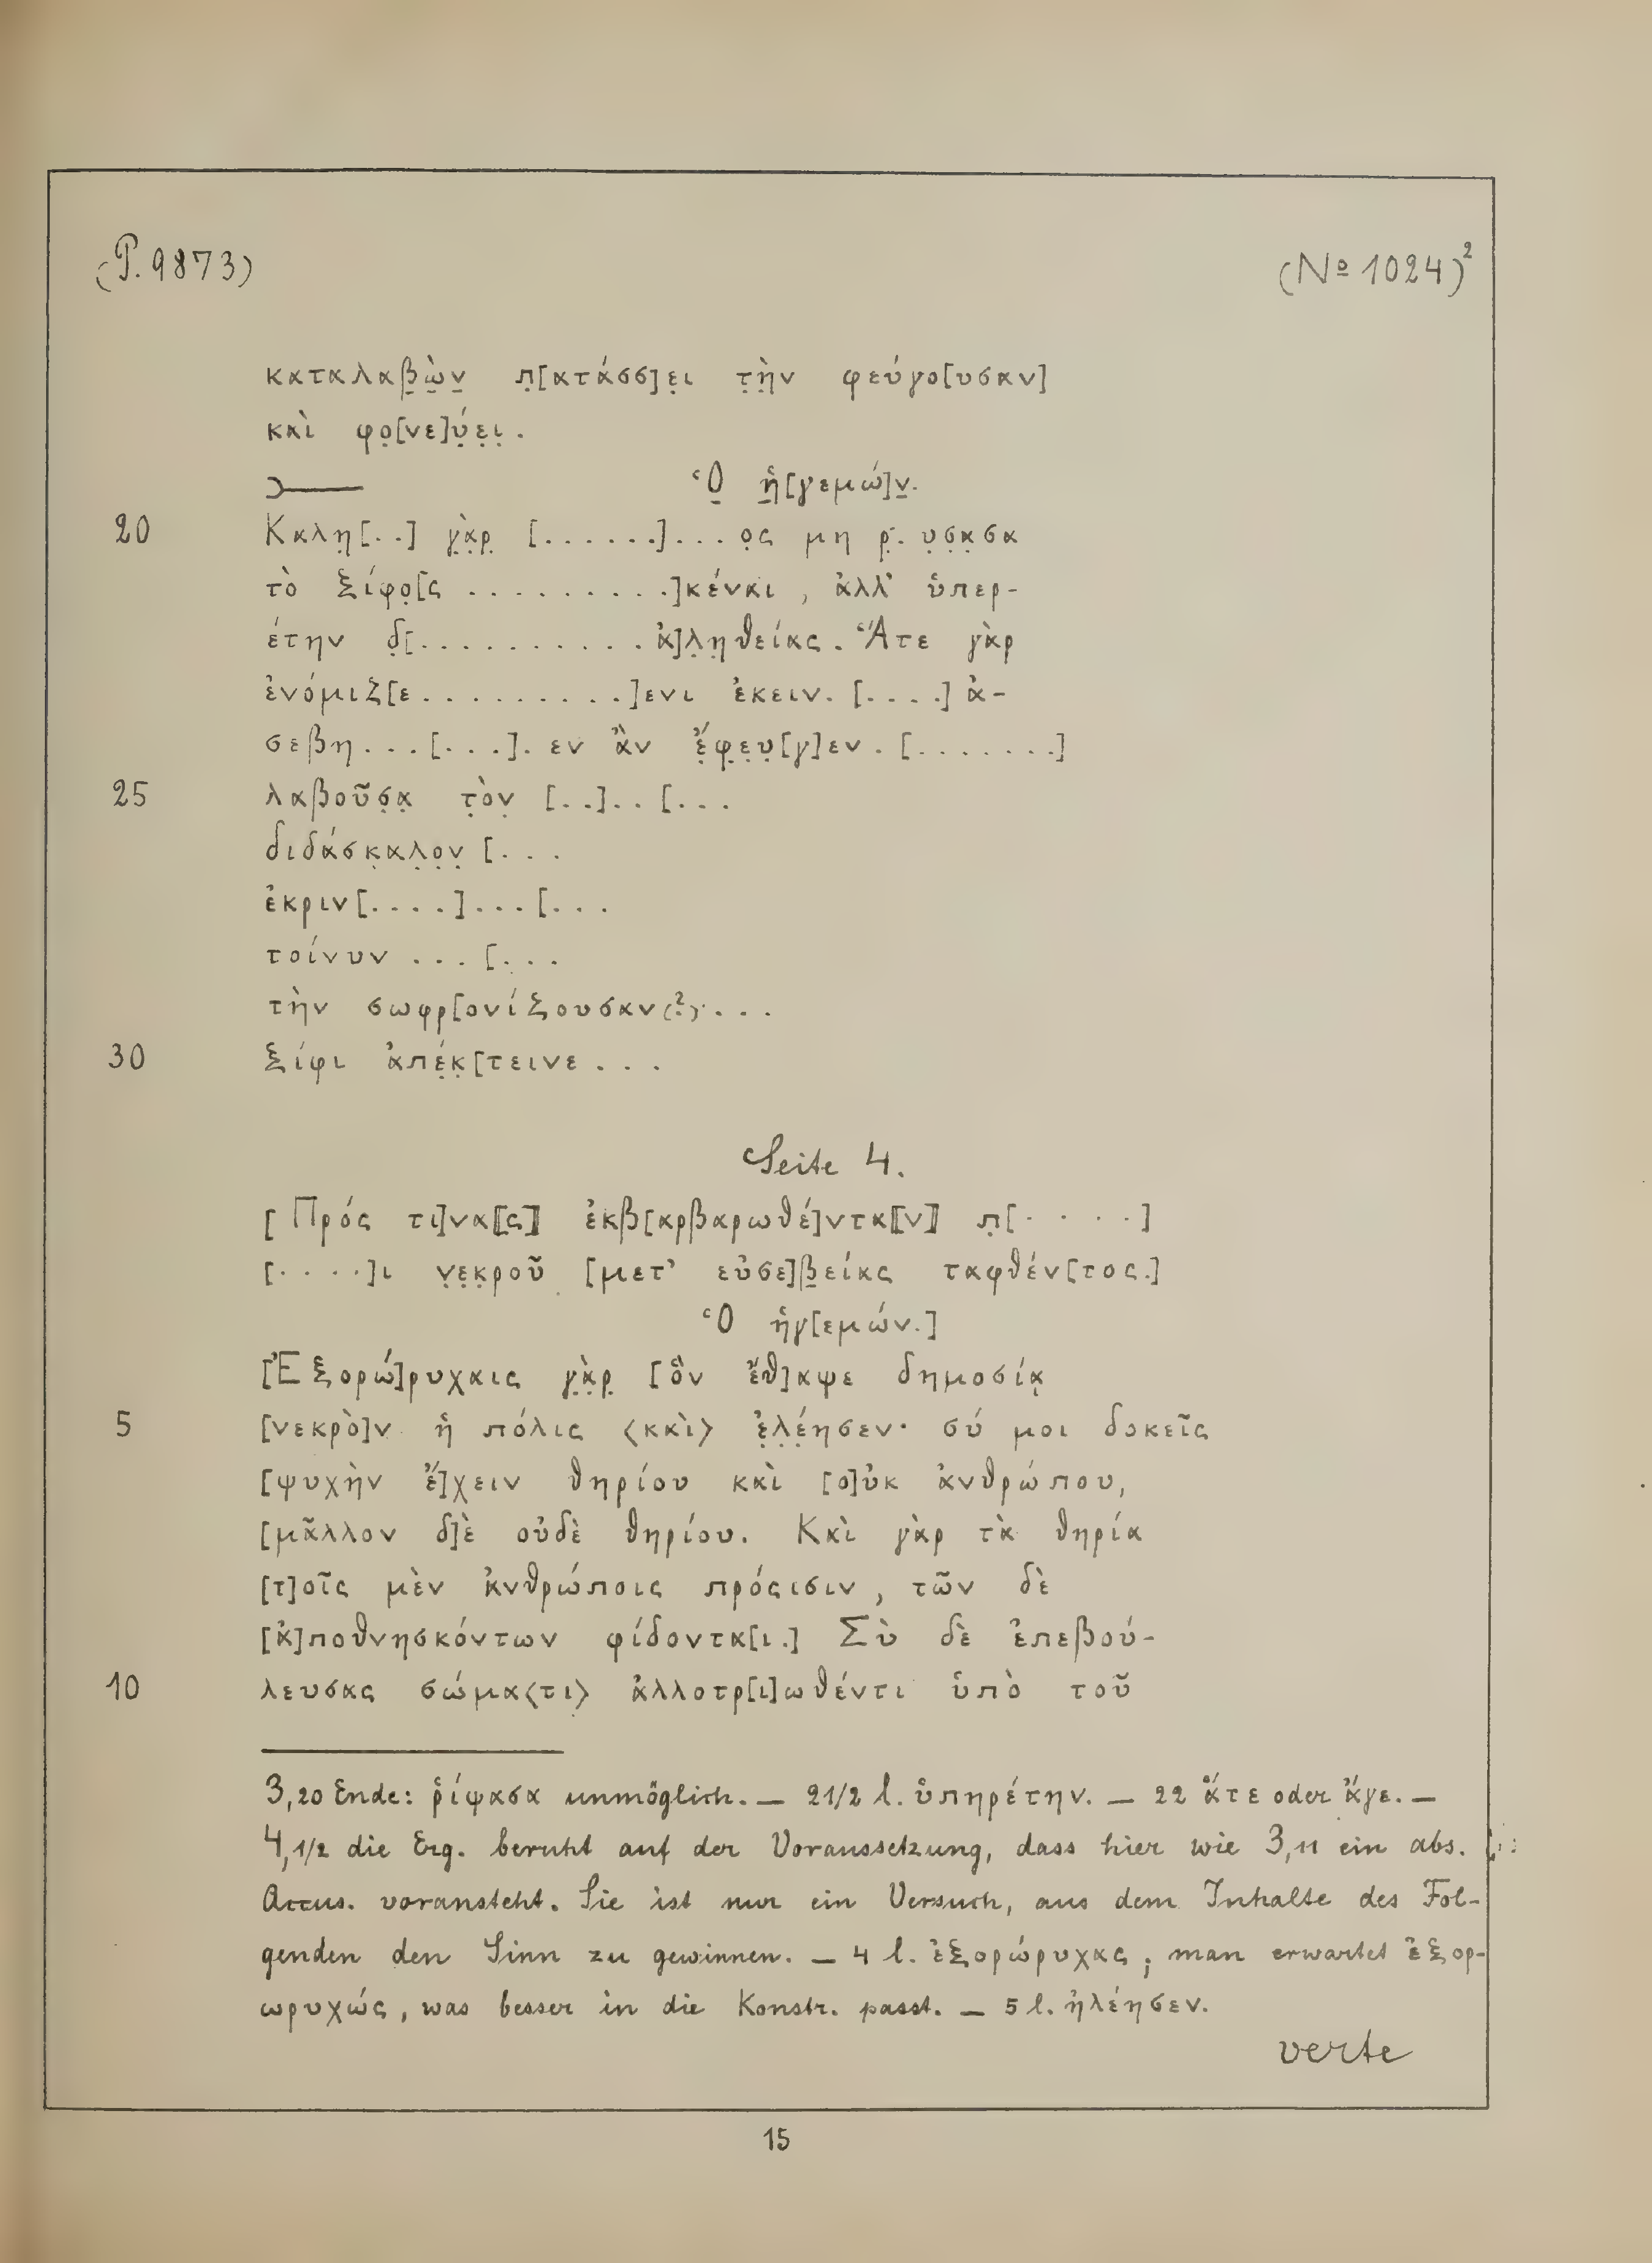 (P. 9873)
(№ 1024)²
καταλαβ̣ὼ̣ν̣ π̣[ατάσσ]ε̣ι τ̣ὴ̣ν φεύγο[υσαν]
καὶ φο̣[νε]ύ̣ε̣ι̣.
Ὁ̣ ἡ̣[γεμώ]ν̣.
20 Καλη̣[..] γ̣ὰ̣ρ̣ [......]...ο̣ς μη ρ̣.υ̣σ̣α̣σα
τὸ ξίφο̣[ς .........]κέναι, ἀλλ' ὑπερ-
έτην δ̣[..........ἀ]λ̣η̣θείας. Ἅτε γὰρ
ἐνόμιζ[ε.........]ενι ἐκειν.[....] ἀ-
σεβη...[...].εν ἂν ἔ̣φ̣ε̣υ̣[γ]εν.[.......]
25 λαβοῦσ̣α̣ τ̣ὸν̣ [..]..[...
διδάσκ̣α̣λ̣ο̣ν̣ [...
ἐκριν[....]...[...
τοίνυν ...[...
τὴν σωφρ[ονίζουσαν(?)...
30 ξίφι ἀπέ̣κ̣[τεινε...
Seite 4.
[Πρός τι]να⟦ς⟧ ἐκβ[αρβαρωθέ]ντα⟦ν⟧ π̣[....]
[....]ι ν̣ε̣κ̣ροῦ [μετ' εὐσε]β̣είας ταφθέν[τος.]
Ὁ ἡγ[εμών.]
[Ἐξορώ]ρυχαις γ̣ὰ̣ρ̣ [ὃν ἔθ]αψε δημοσίᾳ
5 [νεκρὸ]ν ἡ πόλις ⟨καὶ⟩ ἐ̣λ̣έ̣ησεν· σύ μοι δοκεῖς
[ψυχὴν ἔ]χειν θηρίου καὶ [ο]ὐκ ἀνθρώπου,
[μᾶλλον δ]ὲ οὐδὲ θηρίου. Καὶ γὰρ τὰ θηρία
[τ]οῖς μὲν ἀνθρώποις πρόςισιν, τῶν δὲ
[ἀ]ποθνησκόντων φίδοντα[ι.] Σὺ δὲ ἐπεβού-
10 λευσας σώμα⟨τι⟩ ἀλλοτρ[ι]ωθέντι ὑπὸ τοῦ
3,20 Ende: ῥίψασα unmöglich. — 21/2 l. ὑπηρέτην. — 22 ἅτε oder ἄγε. —
4,1/2 die Erg. beruht auf der Voraussetzung, dass hier wie 3,11 ein abs.
Accus. voransteht. Sie ist nur ein Versuch, aus dem Inhalte des Fol-
genden den Sinn zu gewinnen. — 4 l. ἐξορώρυχας; man erwartet ἐξορ-
ωρυχώς, was besser in die Konstr. passt. — 5 l. ἠλέησεν.
verte
15